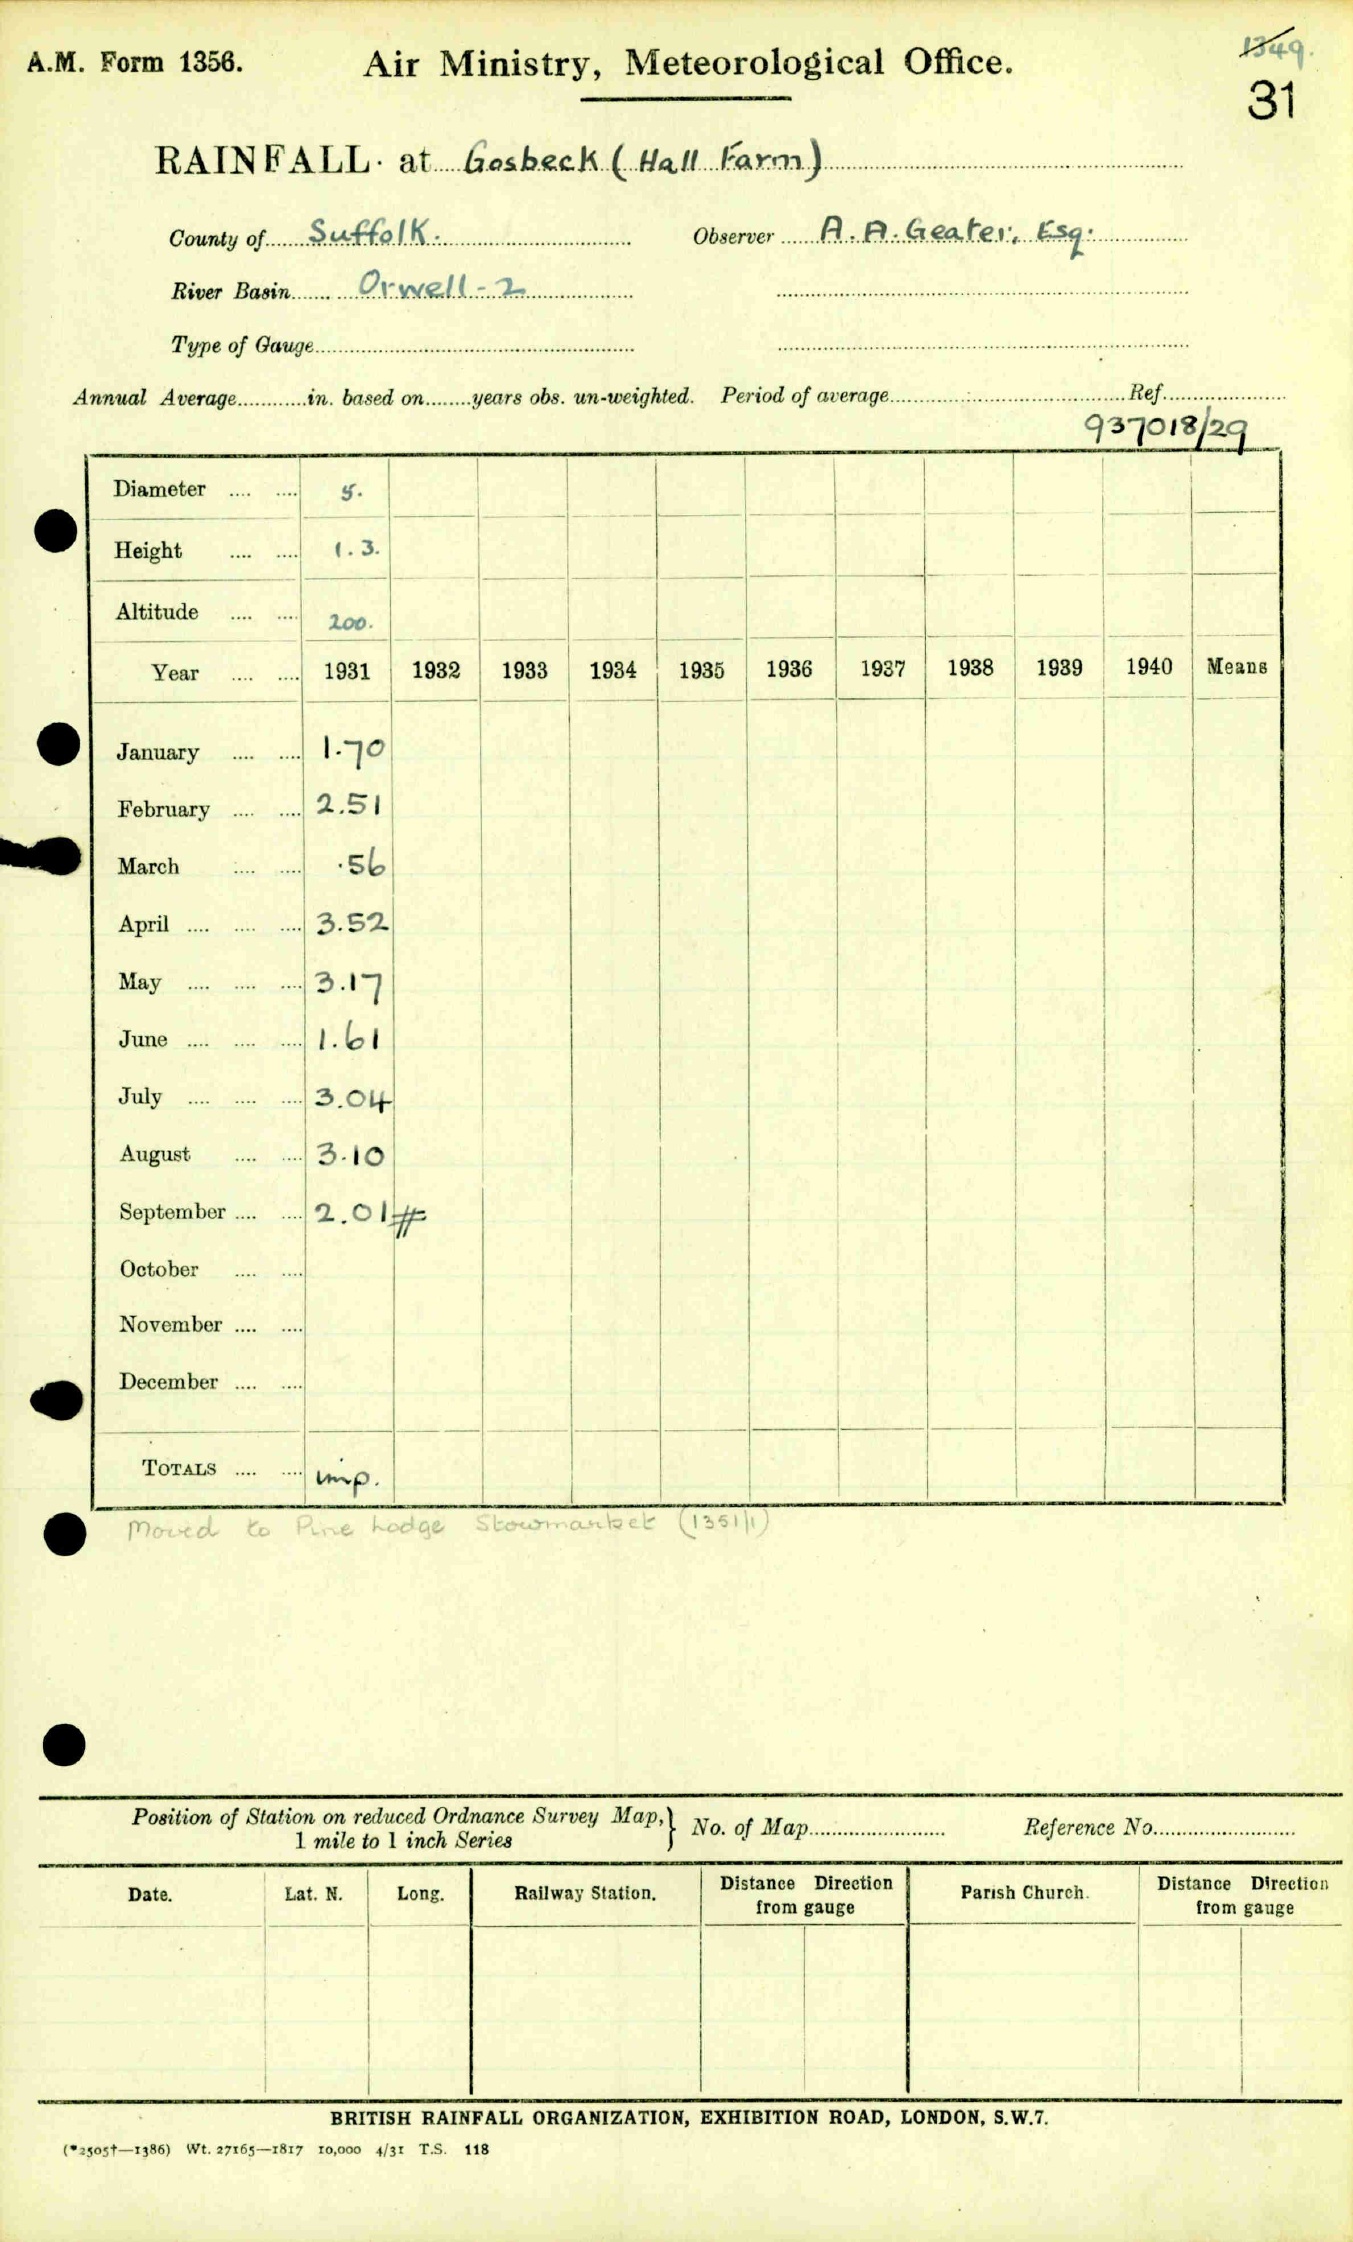 A.M. Form 1356.
Air Ministry, Meteorological Office.
1349.
31
RAINFALL. at Gosbeck (Hall Farm)
County of Suffolk. Observer A. A. Geater, Esq.
River Basin Orwell - 2
Type of Gauge
Annual Average............in. based on........years obs. un-weighted. Period of average Ref.
937018/29
Diameter .... .... 5.
Height .... .... 1.3.
Altitude .... .... 200.
Year .... .... 1931 1932 1933 1934 1935 1936 1937 1938 1939 1940 Means
January .... .... 1.70
February .... .... 2.51
March .... .... .56
April .... .... .... 3.52
May .... .... .... 3.17
June .... .... .... 1.61
July .... .... .... 3.04
August .... .... 3.10
September .... .... 2.01#
October .... ....
November .... ....
December .... ....
TOTALS .... .... imp.
Moved to Pine Lodge Stowmarket (1351/1)
Position of Station on reduced Ordnance Survey Map, } No. of Map Reference No.
1 mile to 1 inch Series
Date. Lat. N. Long. Railway Station. Distance Direction from gauge Parish Church. Distance Direction from gauge
BRITISH RAINFALL ORGANIZATION, EXHIBITION ROAD, LONDON, S.W.7.
(*2505†—1386) Wt. 27165—1817 10,000 4/31 T.S. 118